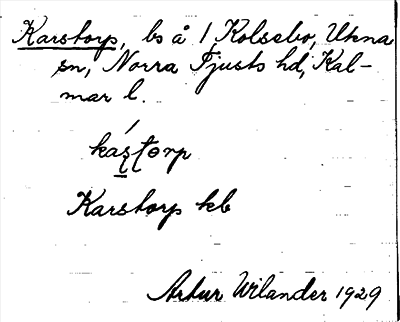 Karstorp, bs å 1 Kolsebo, Ukna
sn, Norra Tjusts hd, Kal-
mar l.
kaʂʈɵrp
Karstorp kb
Artur Wilander 1929